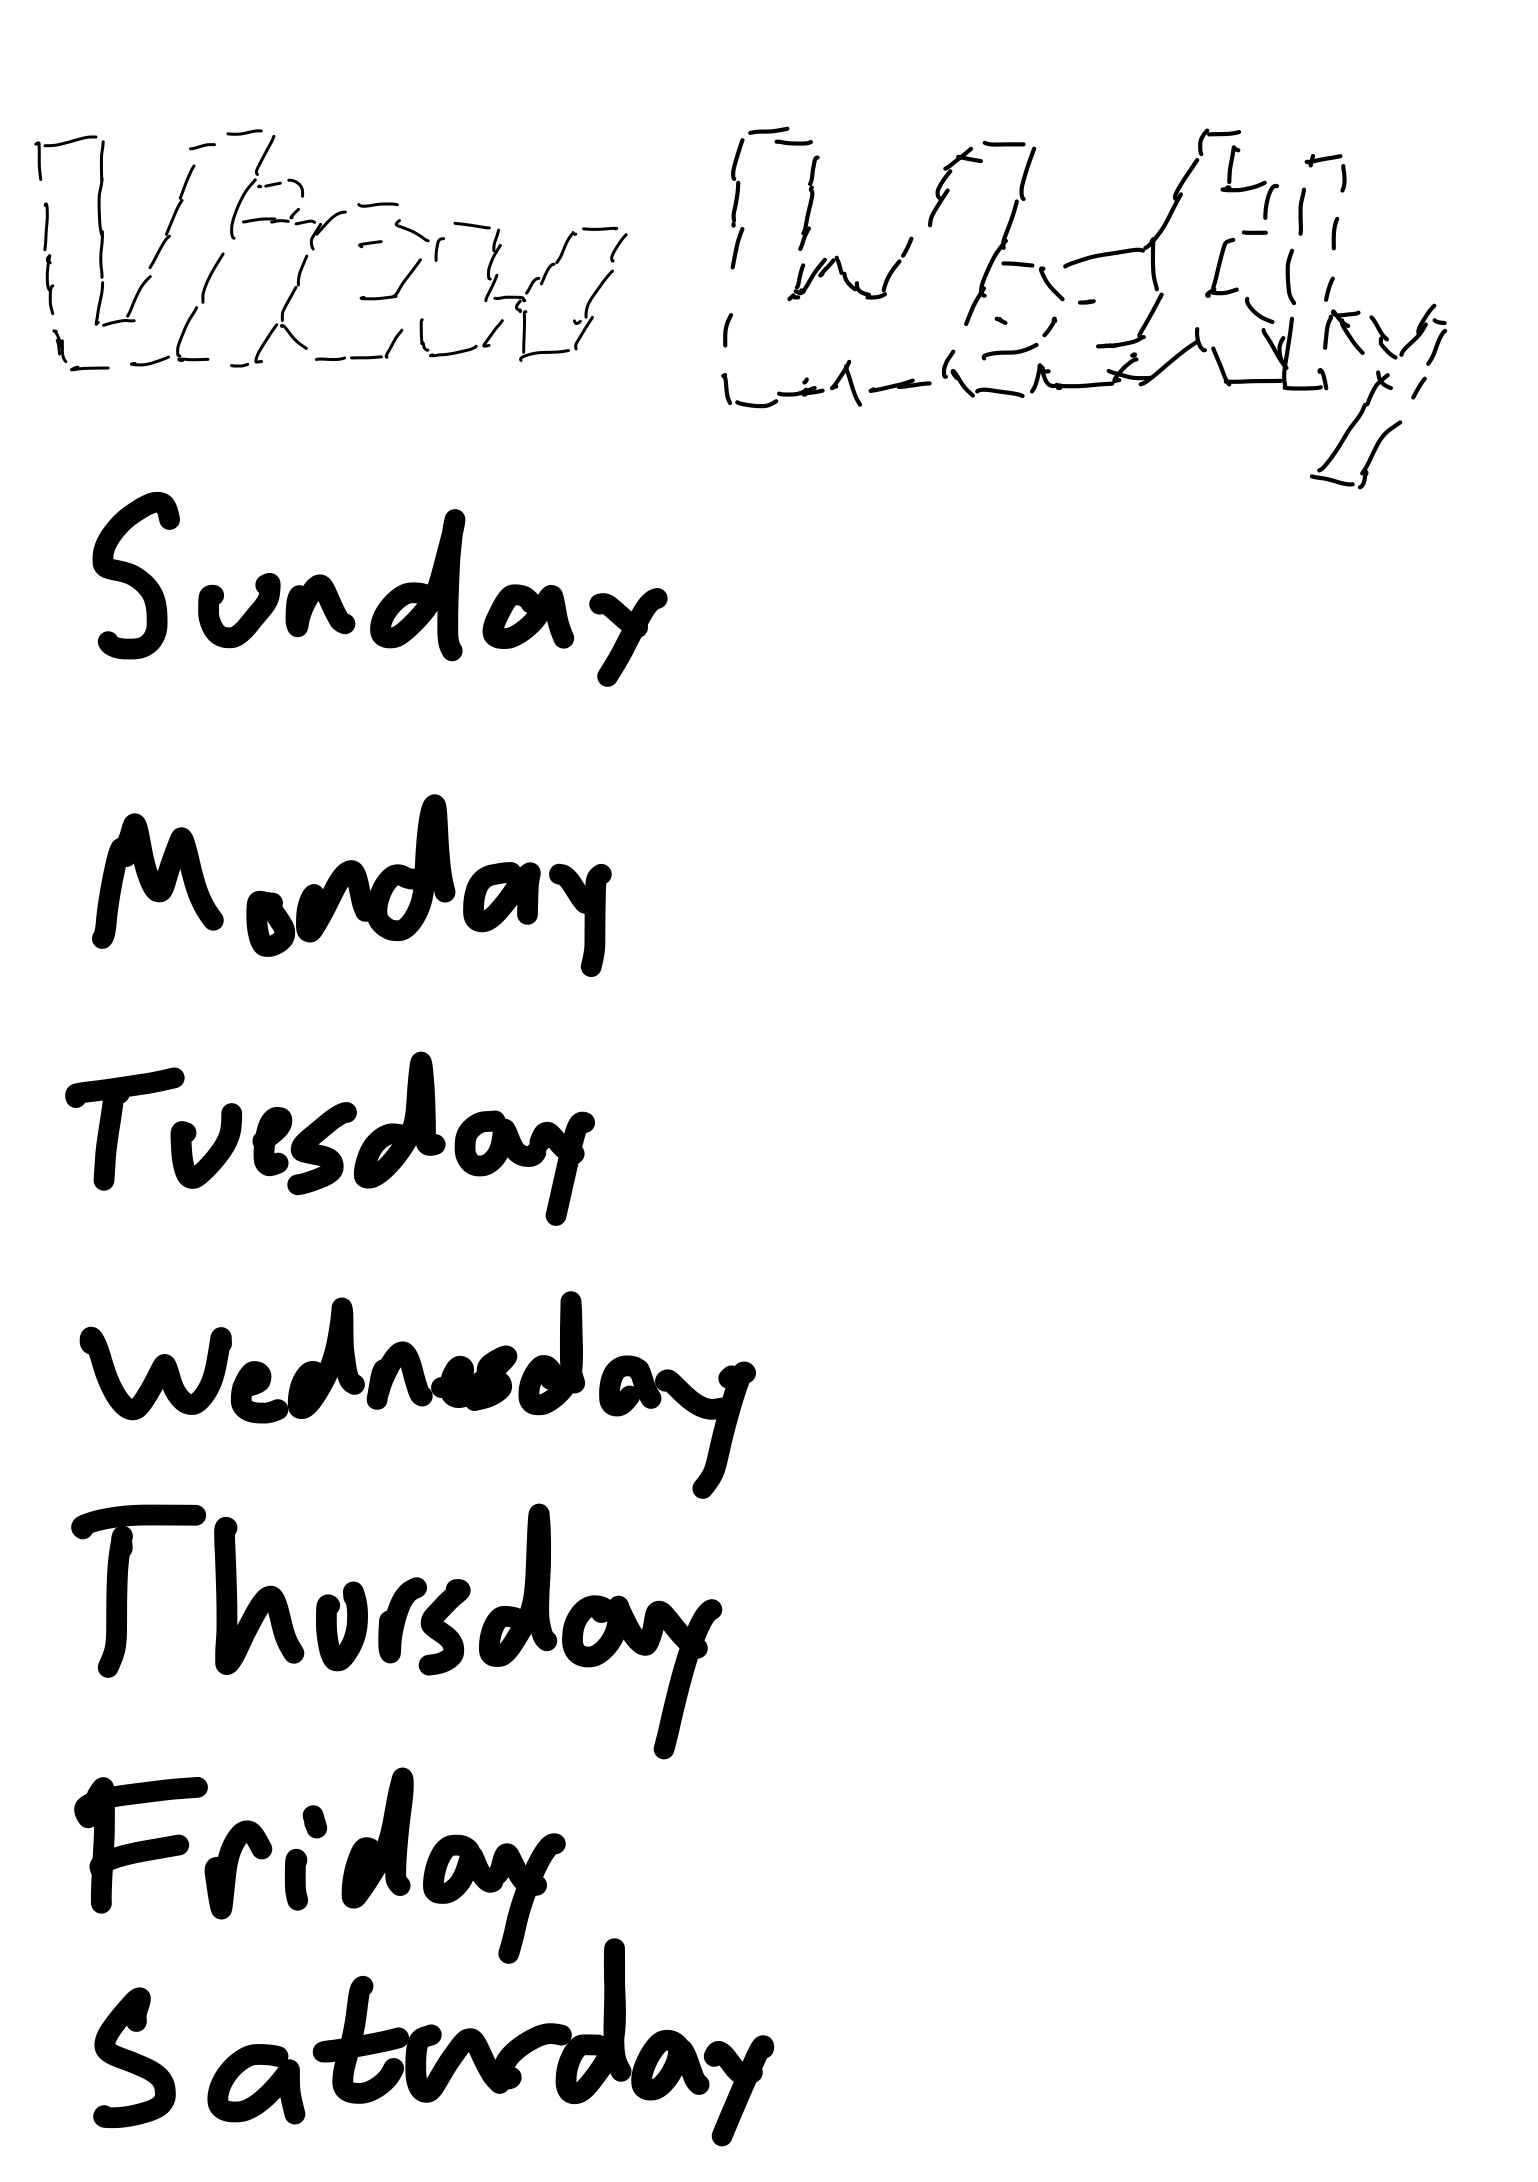 View Weekly
Sunday
Monday
Tuesday
Wednesday
Thursday
Friday
Saturday